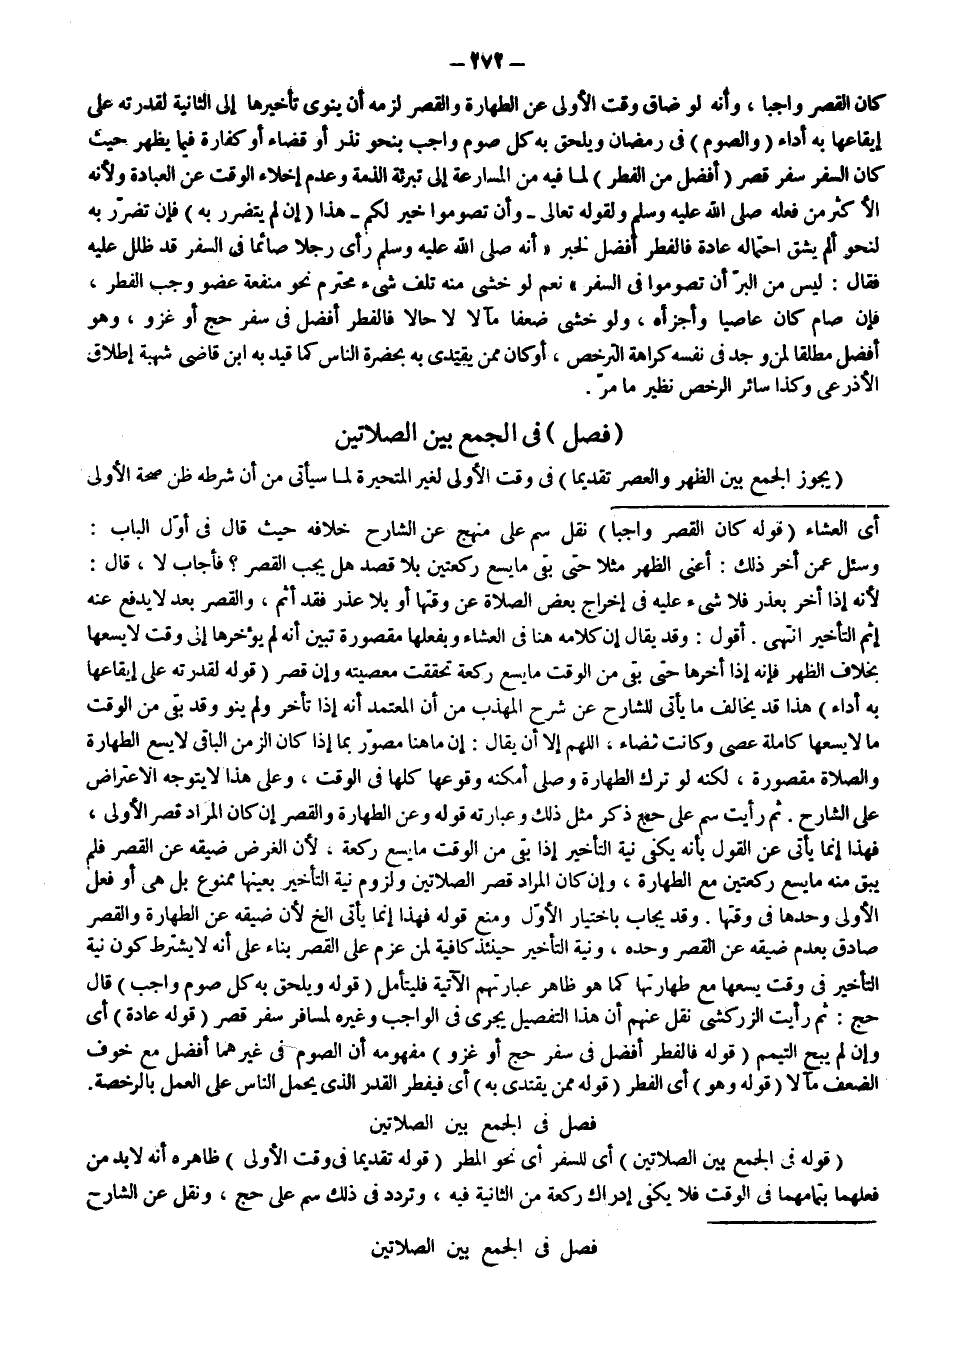 – ٢٧٢ –
كان القصر واجبا ، وأنه لو ضاق وقت الأولى عن الطهارة والقصر لزمه أن ينوى تأخيرها إلى الثانية لقدرته على
إيقاعها به أداء ( والصوم ) فى رمضان ويلحق به كل صوم واجب بنحو نذر أو قضاء أو كفارة فيما يظهر حيث
كان السفر سفر قصر ( أفضل من الفطر ) لما فيه من المسارعة إلى تبرئة الذمة وعدم إخلاء الوقت عن العبادة ولأنه
الأكثر من فعله صلى الله عليه وسلم ولقوله تعالى ـ وأن تصوموا خير لكم ـ هذا ( إن لم يتضرر به ) فإن تضرّر به
لنحو ألم يشق احتماله عادة فالفطر أفضل لخبر « أنه صلى الله عليه وسلم رأى رجلا صائما فى السفر قد ظلل عليه
فقال : ليس من البرّ أن تصوموا فى السفر » نعم لو خشى منه تلف شىء محترم نحو منفعة عضو وجب الفطر ،
فإن صام كان عاصيا وأجزأه ، ولو خشى ضعفا مآلا لا حالا فالفطر أفضل فى سفر حج أو غزو ، وهو
أفضل مطلقا لمن وجد فى نفسه كراهة الترخص ، أو كان ممن يقتدى به بحضرة الناس كما قيد به ابن قاضى شهبة إطلاق
الأذرعى وكذا سائر الرخص نظير ما مرّ .
( فصل ) فى الجمع بين الصلاتين
( يجوز الجمع بين الظهر والعصر تقديما ) فى وقت الأولى لغير المتحيرة لما سيأتى من أن شرطه ظن صحة الأولى
أى العشاء ( قوله كان القصر واجبا ) نقل سم على منهج عن الشارح خلافه حيث قال فى أوّل الباب :
وسئل عمن أخر ذلك : أعنى الظهر مثلا حتى بقى مايسع ركعتين بلا قصد هل يجب القصر ؟ فأجاب لا ، قال :
لأنه إذا أخر بعذر فلا شىء عليه فى إخراج بعض الصلاة عن وقتها أو بلا عذر فقد أثم ، والقصر بعد لايدفع عنه
إثم التأخير انتهى . أقول : وقد يقال إن كلامه هنا فى العشاء وبفعلها مقصورة تبين أنه لم يؤخرها إلى وقت لايسعها
بخلاف الظهر فإنه إذا أخرها حتى بقى من الوقت مايسع ركعة تحققت معصيته وإن قصر ( قوله لقدرته على إيقاعها
به أداء ) هذا قد يخالف ما يأتى للشارح عن شرح المهذب من أن المعتمد أنه إذا تأخر ولم ينو وقد بقى من الوقت
ما لايسعها كاملة عصى وكانت قضاء ، اللهم إلا أن يقال : إن ماهنا مصوّر بما إذا كان الزمن الباقى لايسع الطهارة
والصلاة مقصورة ، لكنه لو ترك الطهارة وصلى أمكنه وقوعها كلها فى الوقت ، وعلى هذا لايتوجه الاعتراض
على الشارح . ثم رأيت سم على حج ذكر مثل ذلك وعبارته قوله وعن الطهارة والقصر إن كان المراد قصر الأولى ،
فهذا إنما يأتى عن القول بأنه يكفى نية التأخير إذا بقى من الوقت مايسع ركعة ، لأن الغرض ضيقه عن القصر فلم
يبق منه مايسع ركعتين مع الطهارة ، وإن كان المراد قصر الصلاتين ولزوم نية التأخير بعينها ممنوع بل هى أو فعل
الأولى وحدها فى وقتها . وقد يجاب باختيار الأوّل ومنع قوله فهذا إنما يأتى الخ لأن ضيقه عن الطهارة والقصر
صادق بعدم ضيقه عن القصر وحده ، ونية التأخير حينئذ كافية لمن عزم على القصر بناء على أنه لايشترط كون نية
التأخير فى وقت يسعها مع طهارتها كما هو ظاهر عبارتهم الآتية فليتأمل ( قوله ويلحق به كل صوم واجب ) قال
حج : ثم رأيت الزركشى نقل عنهم أن هذا التفصيل يجرى فى الواجب وغيره لمسافر سفر قصر ( قوله عادة ) أى
وإن لم يبح التيمم ( قوله فالفطر أفضل فى سفر حج أو غزو ) مفهومه أن الصوم فى غيرهما أفضل مع خوف
الضعف مآلا ( قوله وهو ) أى الفطر ( قوله ممن يقتدى به ) أى فيفطر القدر الذى يحمل الناس على العمل بالرخصة.
فصل فى الجمع بين الصلاتين
( قوله فى الجمع بين الصلاتين ) أى للسفر أى نحو المطر ( قوله تقديما فى وقت الأولى ) ظاهره أنه لابد من
فعلهما بتمامهما فى الوقت فلا يكفى إدراك ركعة من الثانية فيه ، وتردد فى ذلك سم على حج ، ونقل عن الشارح
فصل فى الجمع بين الصلاتين